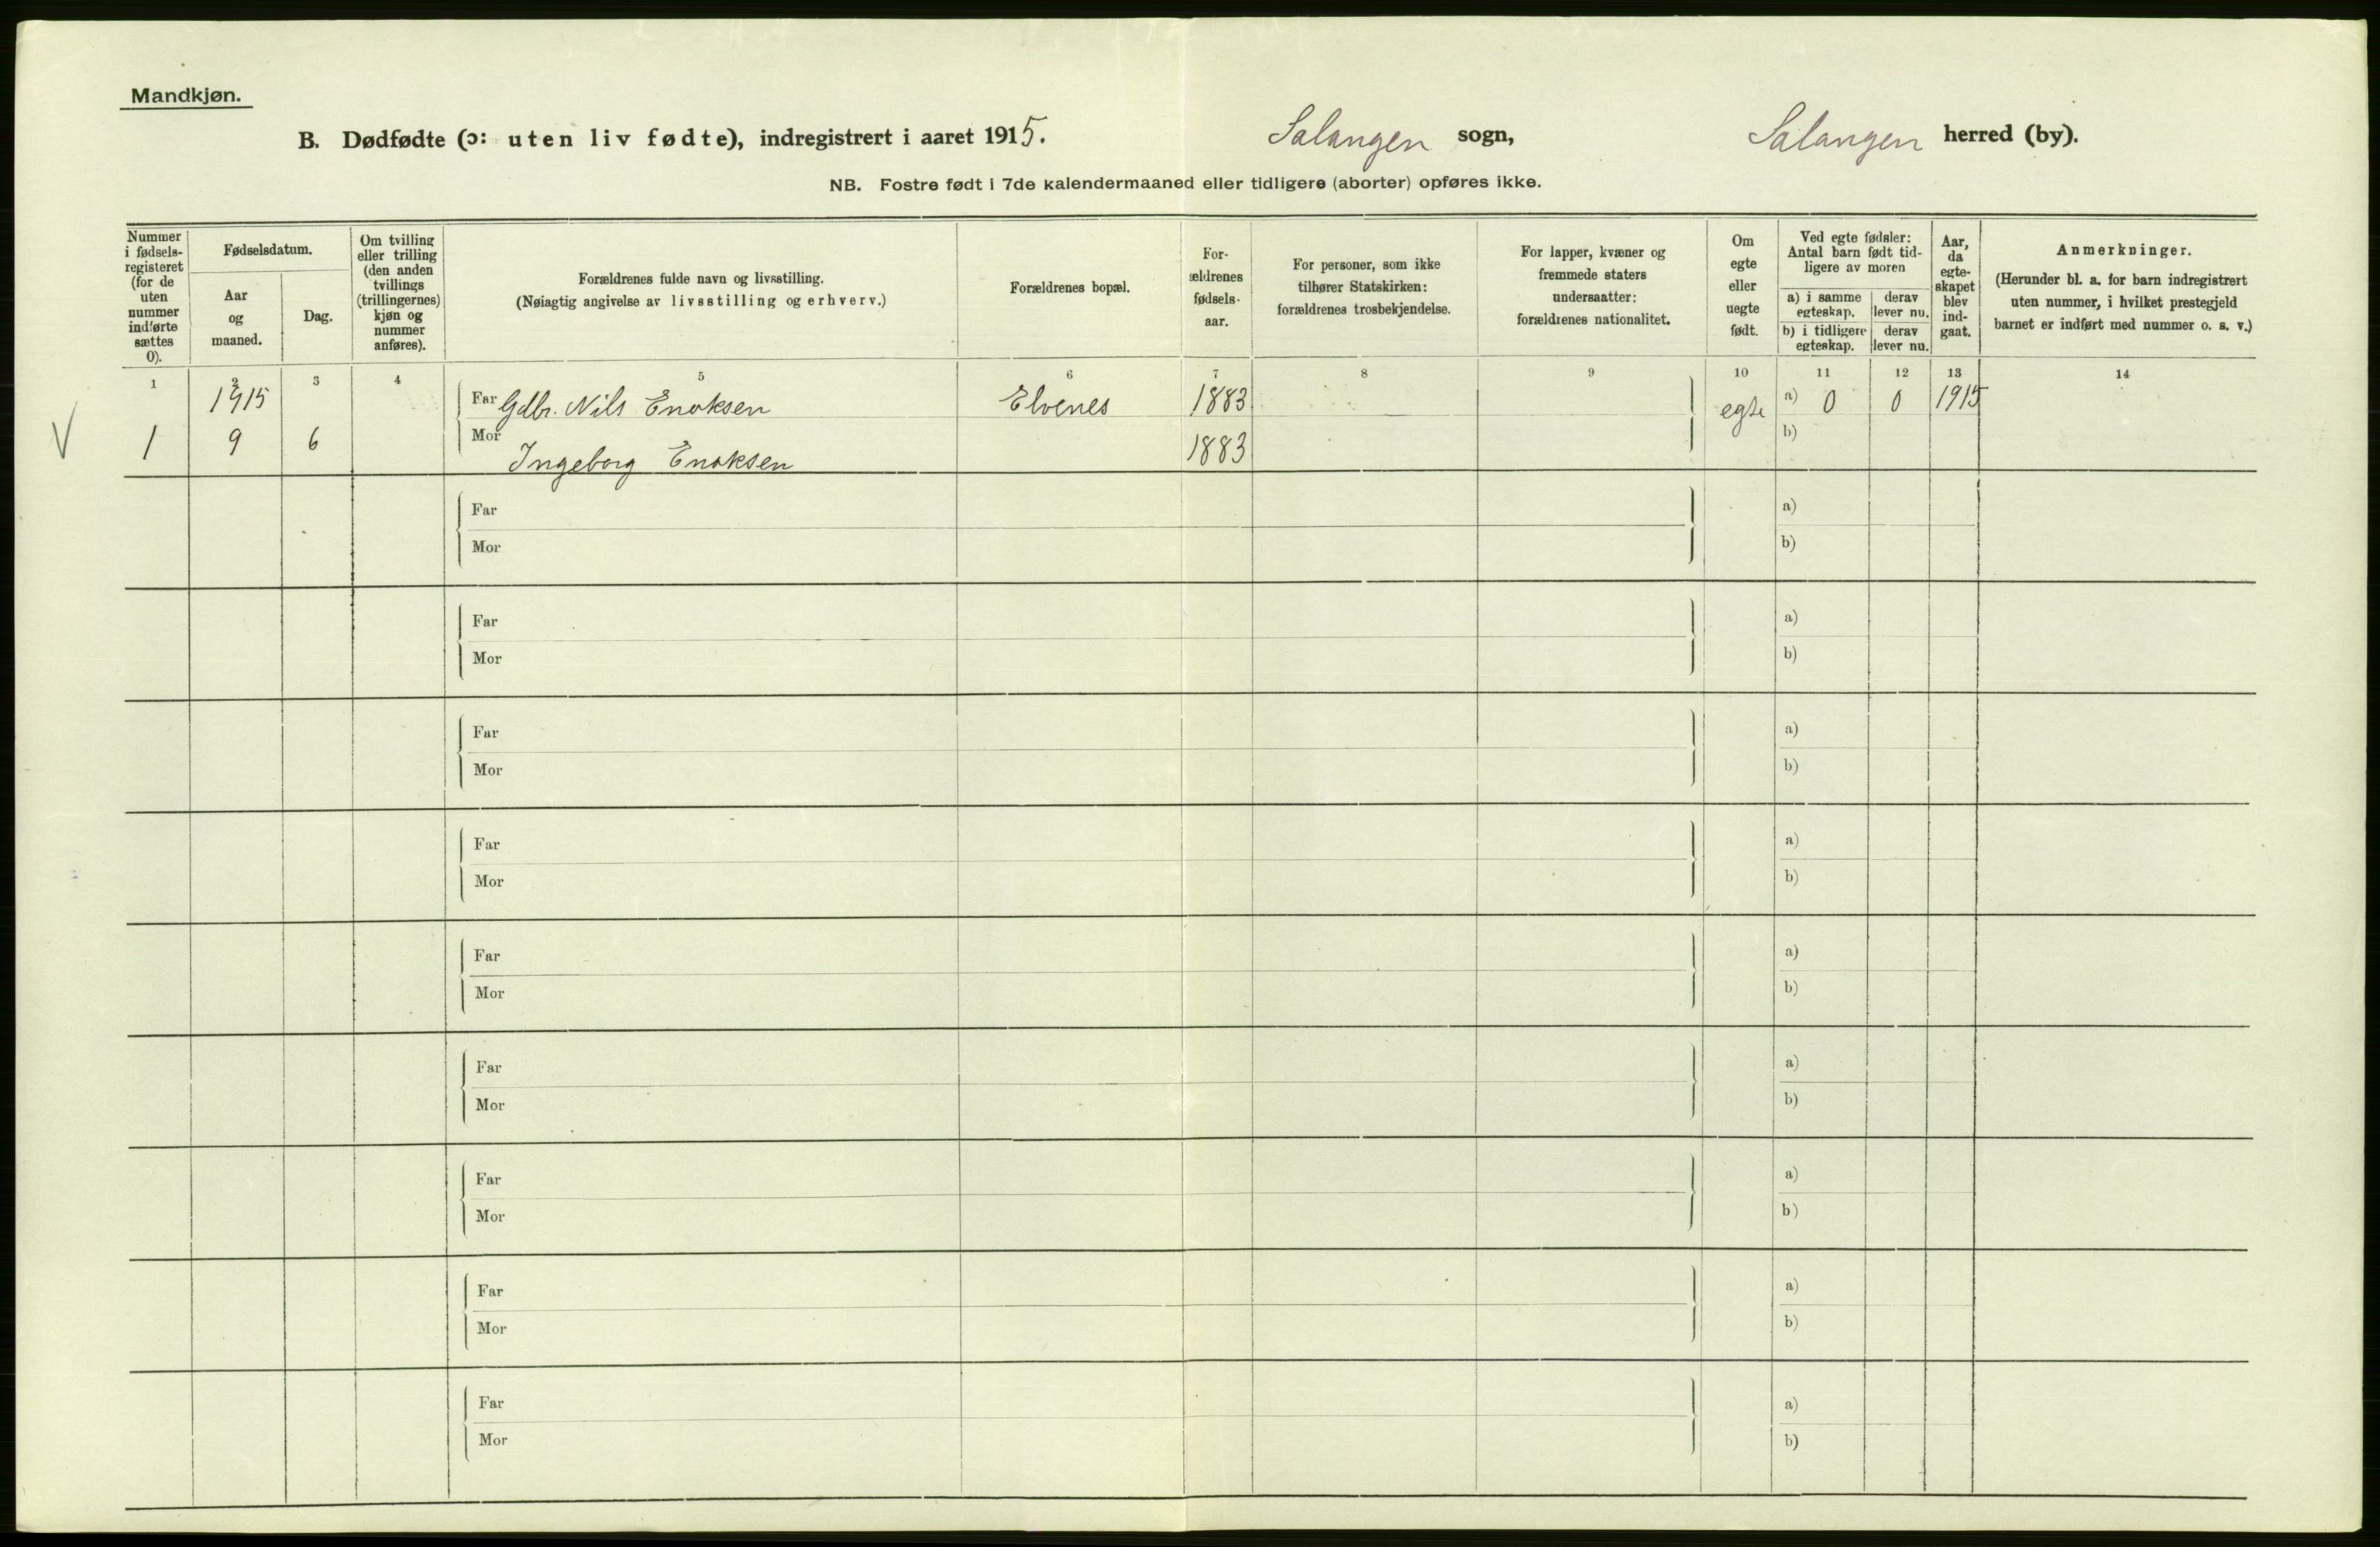 Mandkjøn.
B. Dødfødte (ɔ: uten liv fødte), indregistrert i aaret 1915. Salangen sogn, Salangen herred (by).
NB. Fostre født i 7de kalendermaaned eller tidligere (aborter) opføres ikke.
Nummer i fødsels-registeret (for de uten nummer indførte sættes 0).
Fødselsdatum.
Aar og maaned.
Dag.
Om tvilling eller trilling (den anden tvillings (trillingernes) kjøn og nummer anføres).
Forældrenes fulde navn og livsstilling.
(Nøiagtig angivelse av livsstilling og erhverv.)
Forældrenes bopæl.
For-ældrenes fødsels-aar.
For personer, som ikke tilhører Statskirken: forældrenes trosbekjendelse.
For lapper, kvæner og fremmede staters undersaatter: forældrenes nationalitet.
Om egte eller uegte født.
Ved egte fødsler: Antal barn født tid-ligere av moren
a) i samme egteskap.
derav lever nu.
b) i tidligere egteskap.
derav lever nu.
Aar, da egte-skapet blev ind-gaat.
Anmerkninger.
(Herunder bl. a. for barn indregistrert uten nummer, i hvilket prestegjeld barnet er indført med nummer o. s. v.)
1 2 3 4 5 6 7 8 9 10 11 12 13 14
1915 Far Gdbr. Nils Enoksen Elvenes 1883 egte a) 0 0 1915
V 1 9 6 Mor Ingeborg Enoksen 1883 b)
Far a)
Mor b)
Far a)
Mor b)
Far a)
Mor b)
Far a)
Mor b)
Far a)
Mor b)
Far a)
Mor b)
Far a)
Mor b)
Far a)
Mor b)
Far a)
Mor b)